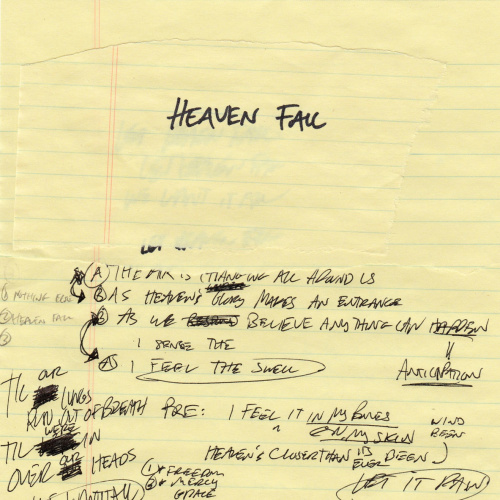 HEAVEN FALL
Ⓐ THE AIR IS CHANGING ALL AROUND US
Ⓑ AS HEAVEN'S GLORY MAKES AN ENTRANCE
AS WE BELIEVE ANYTHING CAN HAPPEN
I SENSE THE
I FEEL THE SWELL
ANTICIPATION
TIL OUR
LUNGS
RUN OUT OF BREATH
PRE: I FEEL IT IN MY BONES
ON MY SKIN
WIND
BEEN
TIL WE'RE IN
OVER OUR HEADS
HEAVEN'S CLOSER THAN IT'S
EVER BEEN
① FREEDOM
② MERCY
GRACE
LET IT RAIN
② HEAVEN FALL
③